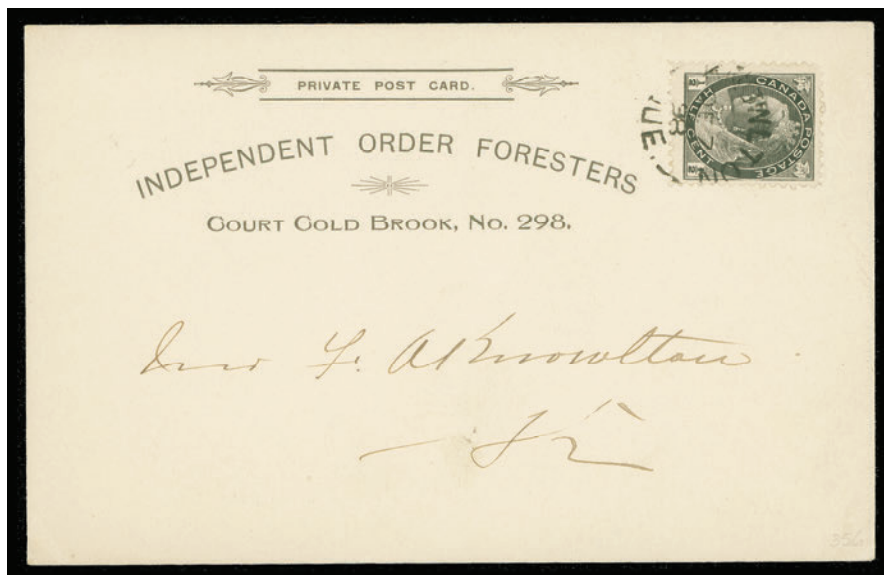 PRIVATE POST CARD.
INDEPENDENT ORDER FORESTERS
COURT COLD BROOK, No. 298.
CANADA POSTAGE
HALF CENT
98
F. A Knowlton
356